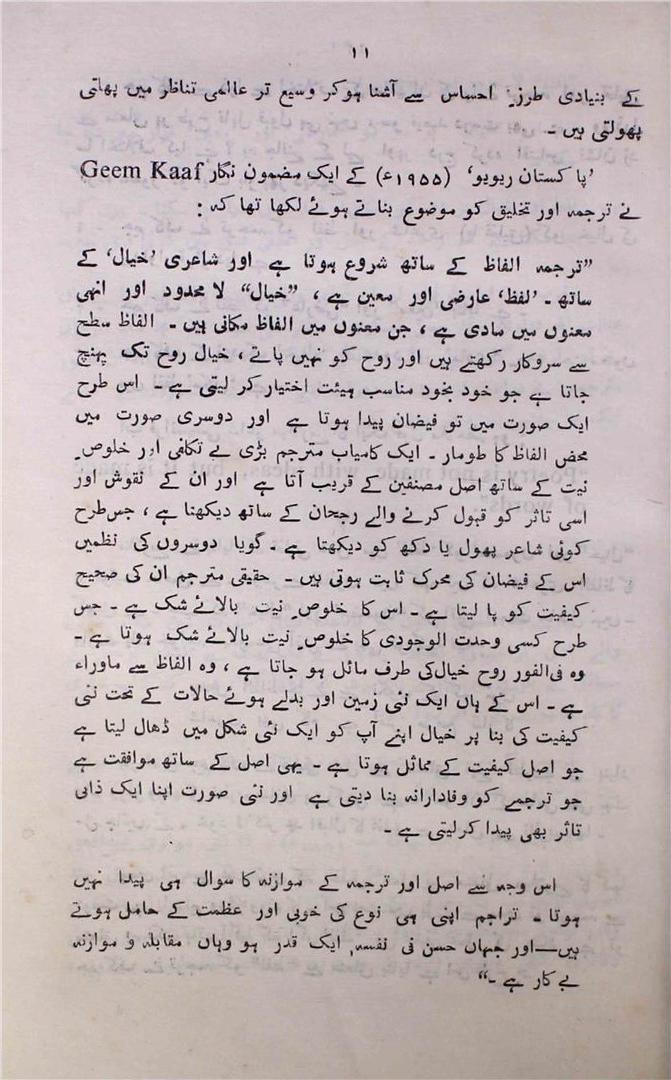 ۱۱
کے بنیادی طرزِ احساس سے آشنا ہوکر وسیع تر عالمی تناظر میں پھلتی
پھولتی ہیں ۔
’پاکستان ریویو‘ (۱۹۵۵ع) کے ایک مضمون نگار Geem Kaaf
نے ترجمہ اور تخلیق کو موضوع بناتے ہوئے لکھا تھا کہ :
”ترجمہ الفاظ کے ساتھ شروع ہوتا ہے اور شاعری ’خیال‘ کے
ساتھ ۔ ’لفظ‘ عارضی اور معین ہے ، ”خیال“ لا محدود اور انہی
معنوں میں مادی ہے ، جن معنوں میں الفاظ مکانی ہیں ۔ الفاظ سطح
سے سروکار رکھتے ہیں اور روح کو نہیں پاتے ، خیال روح تک پہنچ
جاتا ہے جو خود بخود مناسب ہیئت اختیار کر لیتی ہے ۔ اس طرح
ایک صورت میں تو فیضان پیدا ہوتا ہے اور دوسری صورت میں
محض الفاظ کا طومار ۔ ایک کامیاب مترجم بڑی بے تکلفی اور خلوصِ
نیت کے ساتھ اصل مصنفین کے قریب آتا ہے اور ان کے نقوش اور
اسی تاثر کو قبول کرنے والے رجحان کے ساتھ دیکھتا ہے ، جس طرح
کوئی شاعر پھول یا دکھ کو دیکھتا ہے ۔ گویا دوسروں کی نظمیں
اس کے فیضان کی محرک ثابت ہوتی ہیں ۔ حقیقی مترجم ان کی صحیح
کیفیت کو پا لیتا ہے ۔ اس کا خلوصِ نیت بالائے شک ہے ۔ جس
طرح کسی وحدت الوجودی کا خلوصِ نیت بالائے شک ہوتا ہے ۔
وہ فی الفور روح خیال کی طرف مائل ہو جاتا ہے ، وہ الفاظ سے ماوراء
ہے ۔ اس کے ہاں ایک نئی زمین اور بدلے ہوئے حالات کے تحت نئی
کیفیت کی بنا پر خیال اپنے آپ کو ایک نئی شکل میں ڈھال لیتا ہے
جو اصل کیفیت کے مماثل ہوتا ہے ۔ یہی اصل کے ساتھ موافقت ہے
جو ترجمے کو وفادارانہ بنا دیتی ہے اور نئی صورت اپنا ایک ذاتی
تاثر بھی پیدا کرلیتی ہے ۔
اس وجہ سے اصل اور ترجمہ کے موازنہ کا سوال ہی پیدا نہیں
ہوتا ۔ تراجم اپنی ہی نوع کی خوبی اور عظمت کے حامل ہوتے
ہیں—اور جہاں حسن فی نفسہٖ ایک قدر ہو وہاں مقابلہ و موازنہ
بے کار ہے ۔“